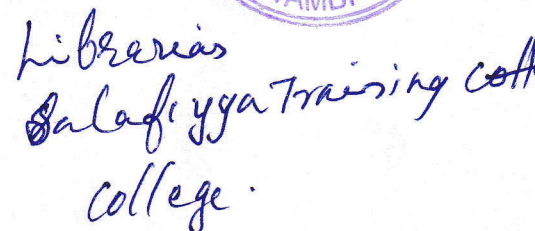 Librarian
Salafiyya Training coll
college.